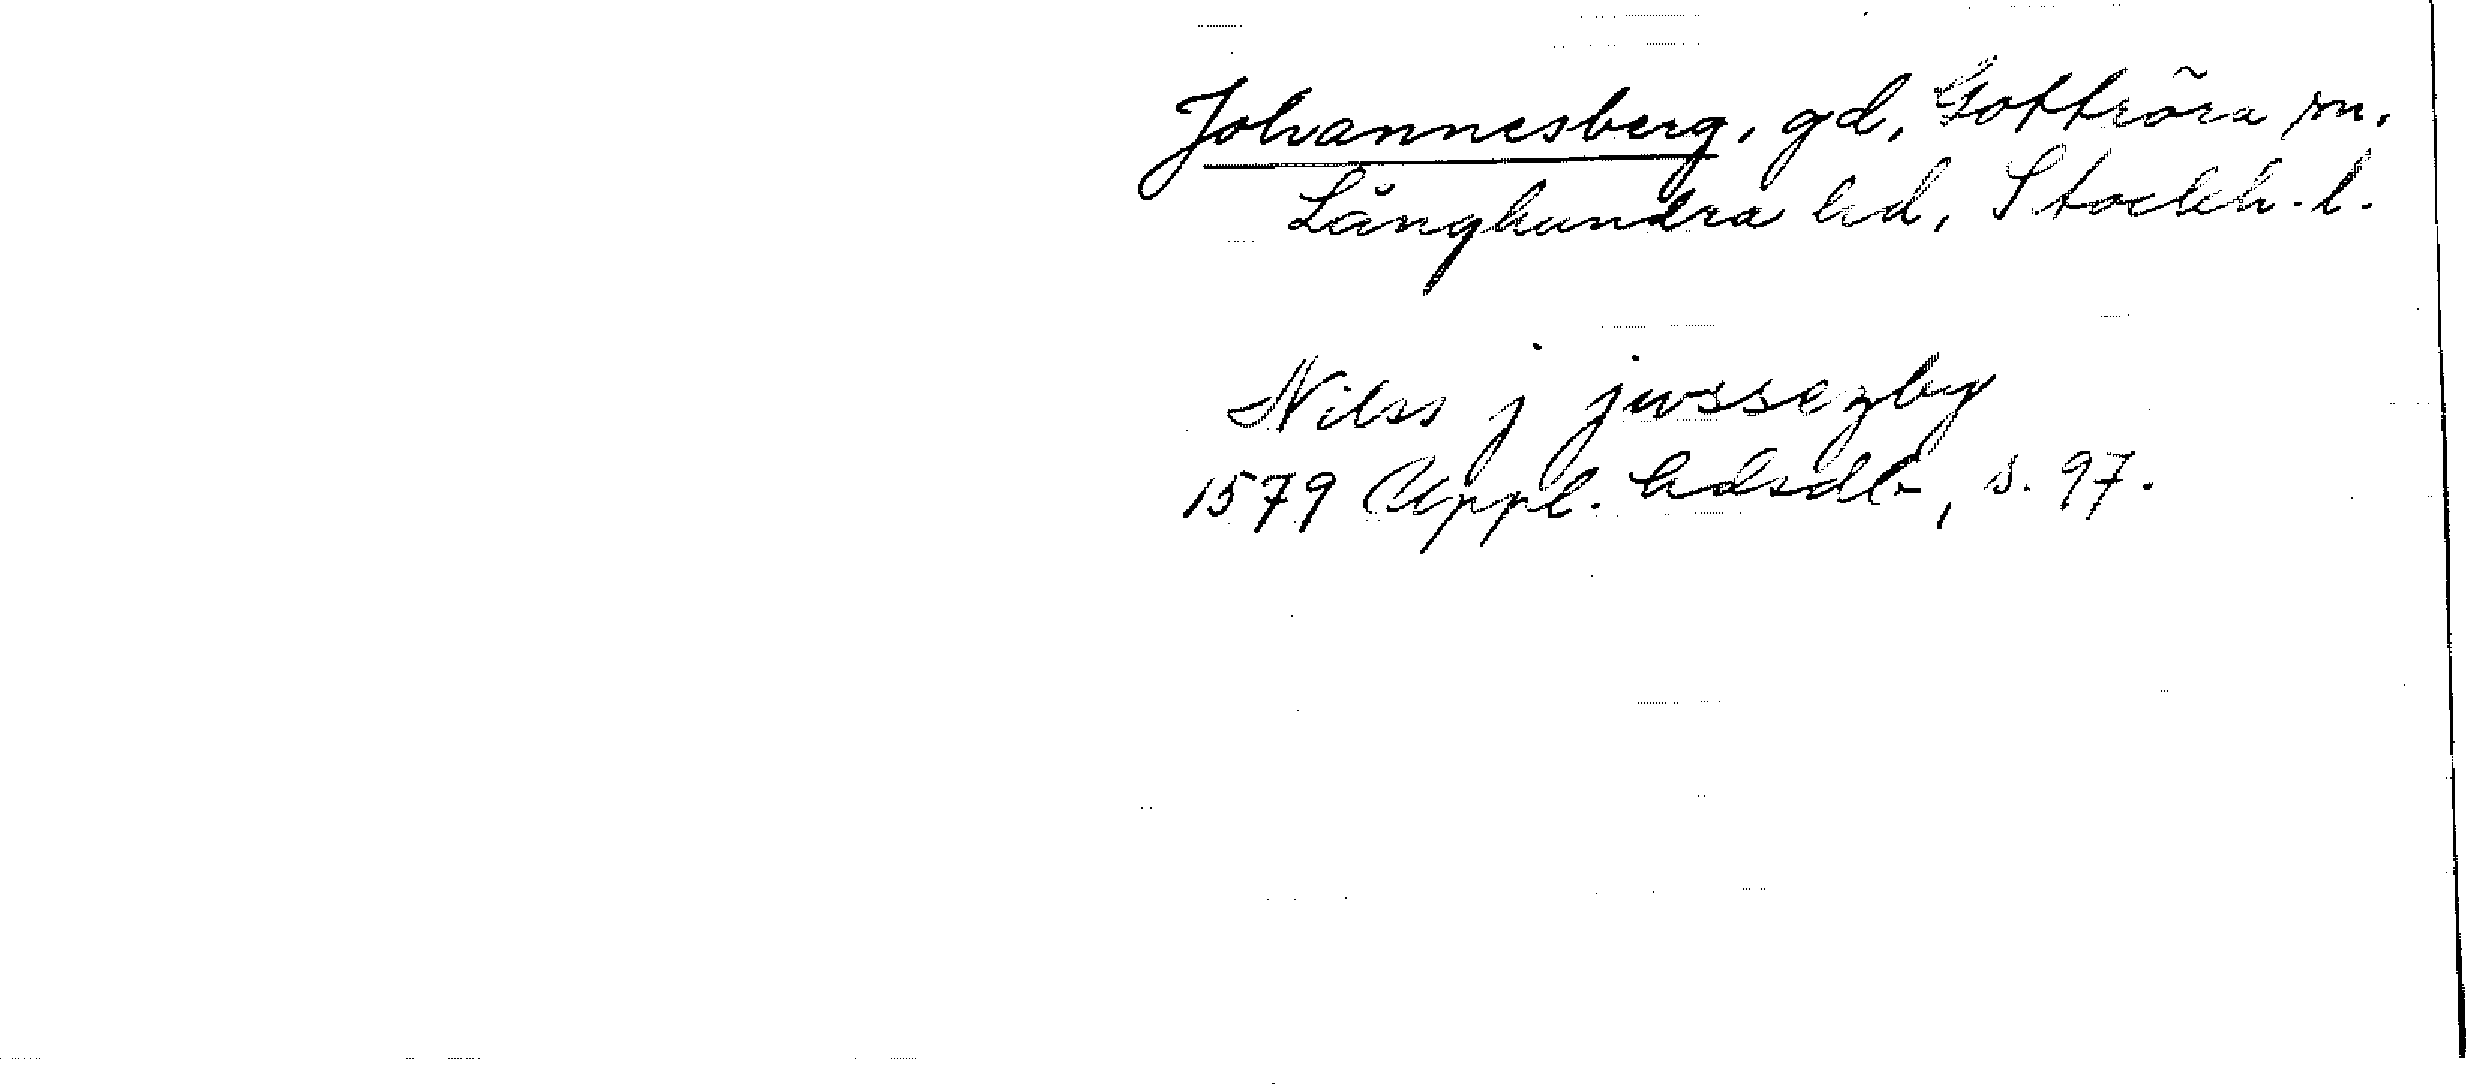 Johannesberg, gd, Gottröra sn,
Långhundra hd, Stockh. l.
Nilss j jwssezby
1579 Uppl. hdsdb, s. 97.